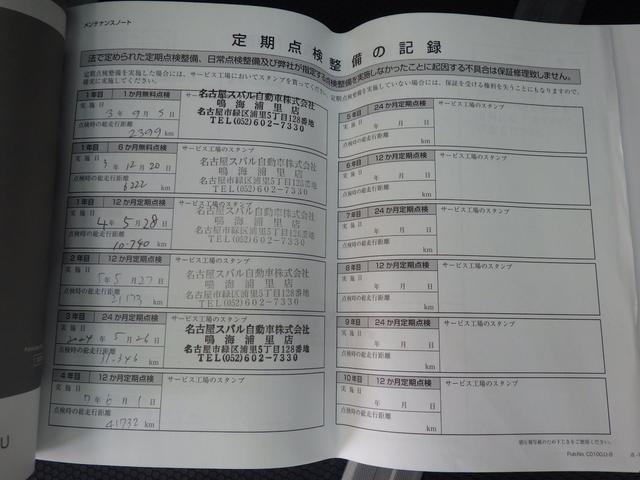 メンテナンスノート
定期点検整備の記録
法で定められた定期点検整備、日常点検整備及び弊社が指定する点検整備を実施しなかったことに起因する不具合は保証修理致しません。
定期点検整備を実施した場合には、サービス工場においてスタンプを貰ってください。定期点検整備を実施していない場合には、保証を受ける権利を失うことにもなりますので、
確実に実施してください。
1年目 1か月無料点検
実施日
3年9月5日
点検時の総走行距離
2399 km
名古屋スバル自動車株式会社
鳴海浦里店
名古屋市緑区浦里5丁目128番地
TEL(052)602-7330
1年目 6か月無料点検 サービス工場のスタンプ
実施日
3年12月20日
点検時の総走行距離
6222 km
名古屋スバル自動車株式会社
鳴海浦里店
名古屋市緑区浦里5丁目128番地
TEL(052)602-7330
1年目 12か月定期点検 サービス工場のスタンプ
実施日
4年5月28日
点検時の総走行距離
10.790 km
名古屋スバル自動車株式会社
鳴海浦里店
名古屋市緑区浦里5丁目128番地
TEL(052)602-7330
2年目 12か月定期点検 サービス工場のスタンプ
実施日
5年5月27日
点検時の総走行距離
21173 km
名古屋スバル自動車株式会社
鳴海浦里店
名古屋市緑区浦里5丁目128番地
TEL(052)602-7330
3年目 24か月定期点検 サービス工場のスタンプ
実施日
2024年5月26日
点検時の総走行距離
km
名古屋スバル自動車株式会社
鳴海浦里店
名古屋市緑区浦里5丁目128番地
TEL(052)602-7330
4年目 12か月定期点検 サービス工場のスタンプ
実施日
7年6月1日
点検時の総走行距離
41732 km
5年目 24か月定期点検 サービス工場のスタンプ
実施日
年 月 日
点検時の総走行距離
km
6年目 12か月定期点検 サービス工場のスタンプ
実施日
年 月 日
点検時の総走行距離
km
7年目 24か月定期点検 サービス工場のスタンプ
実施日
年 月 日
点検時の総走行距離
km
8年目 12か月定期点検 サービス工場のスタンプ
実施日
年 月 日
点検時の総走行距離
km
9年目 24か月定期点検 サービス工場のスタンプ
実施日
年 月 日
点検時の総走行距離
km
10年目 12か月定期点検 サービス工場のスタンプ
実施日
年 月 日
点検時の総走行距離
km
感圧複写紙のため下じきをご使用ください。
Pub.No. C0100JJ-B